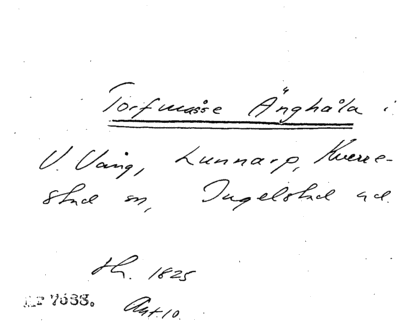 Torfmosse Änghåla i
V. Vång, Lunnarp, Kverre-
stad sn, Ingelstad hd.
sk. 1825
7688.
Akt. 10